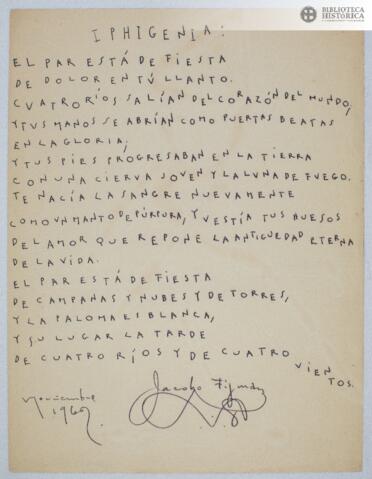 BIBLIOTECA
HISTÓRICA
IPHIGENIA:
EL PAR ESTÁ DE FIESTA
DE DOLOR EN TÚ LLANTO.
CUATRO RÍOS SALÍAN DEL CORAZÓN DEL MUNDO;
Y TUS MANOS SE ABRÍAN COMO PUERTAS BEATAS
EN LA GLORIA;
Y TUS PIES PROGRESABAN EN LA TIERRA
CON UNA CIERVA JOVEN Y LA LUNA DE FUEGO.
TE NACÍA LA SANGRE NUEVAMENTE
COMO UN MANTO DE PÚRPURA, Y VESTÍA TUS HUESOS
DEL AMOR QUE REPONE LA ANTIGUEDAD ETERNA
DE LA VIDA.
EL PAR ESTÁ DE FIESTA
DE CAMPAÑAS Y NUBES Y DE TORRES,
Y LA PALOMA ES BLANCA,
Y SU LUGAR LA TARDE
DE CUATRO RÍOS Y DE CUATRO VIENTOS.
Jacobo Fijman
noviembre